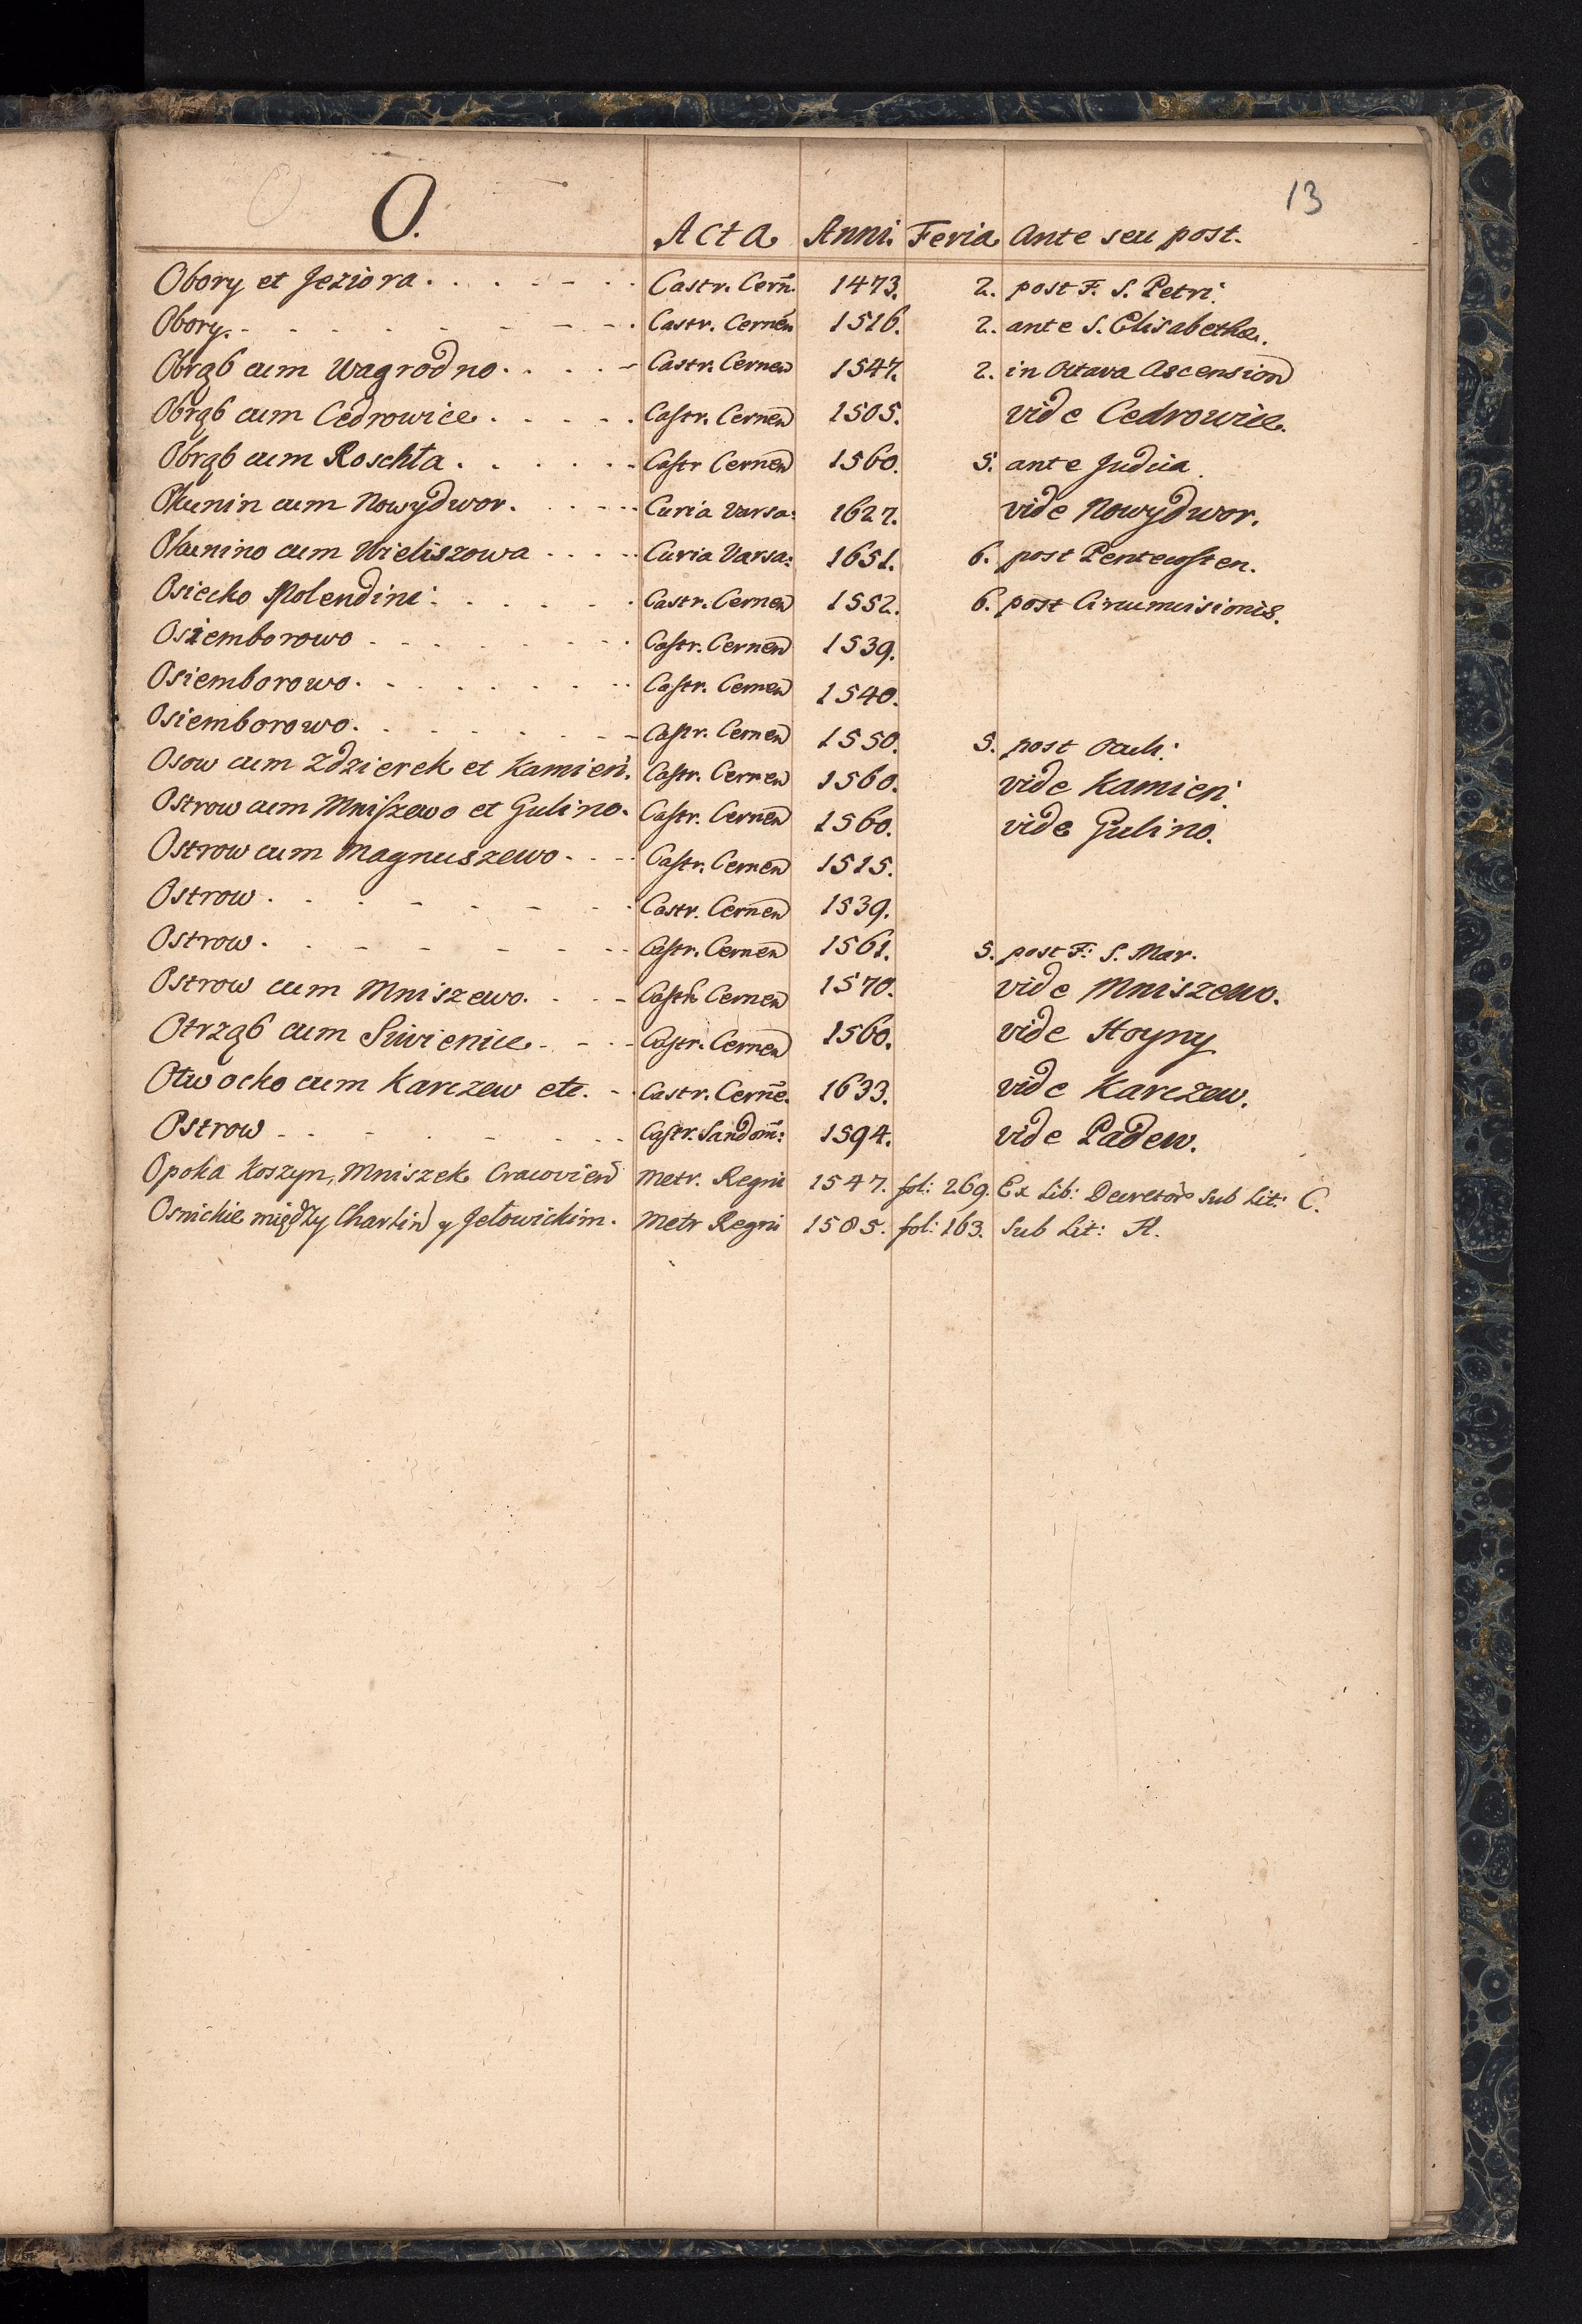 13
O. Acta Anni. Feria Ante seu post.
Obory et Jeziora. Castr. Cern̄. 1473. 2. post F. S. Petri.
Obory. Castr. Cernen̄ 1516. 2. ante S. Elisabethæ.
Obrąb cum Wagrodno. Castr. Cernen̄ 1547. 2. in Octava Ascension̄
Obrąb cum Cedrowice. Castr. Cernen̄ 1505. vide Cedrowice.
Obrąb cum Roschta. Castr Cernen̄ 1560. 5. ante Judica.
Okunin cum Nowydwor. Curia Varsa: 1627. vide Nowydwor.
Okunino cum Wieliszowa Curia Varsa: 1651. 6. post Pentecosten.
Osiecko Molendini. Castr. Cernen̄ 1552. 6. post Circumcisionis.
Osiemborowo Castr. Cernen̄ 1539.
Osiemborowo. Castr. Cernen̄ 1540.
Osiemborowo. Castr. Cernen̄ 1550. 5. post Oculi.
Osow cum Zdzierek et Kamień. Castr. Cernen̄ 1560. vide Kamień.
Ostrow cum Mniszewo et Gulino. Castr. Cernen̄ 1560. vide Gulino.
Ostrow cum Magnuszewo. Castr. Cernen̄ 1515.
Ostrow. Castr. Cernen̄ 1539.
Ostrow. Castr. Cernen̄ 1561. 5. post F: S. Mar.
Ostrow cum Mniszewo. Castr. Cernen̄ 1570. vide Mniszewo.
Otrząb cum Swienice. Castr. Cernen̄ 1560. vide Hoyny
Otwocko cum Karczew etc. Castr. Cern̄e. 1633. vide Karczew.
Ostrow Castr. Sandom̄: 1594. vide Padew.
Opoka Koszyn, Mniszek Cracovien̄ Metr. Regni 1547. fol: 269. Ex Lib: Decretor̄ Sub Lit: C.
Osnickie między Charlin̄ y Jełowickim. Metr Regni 1585. fol: 163. Sub Lit: A.